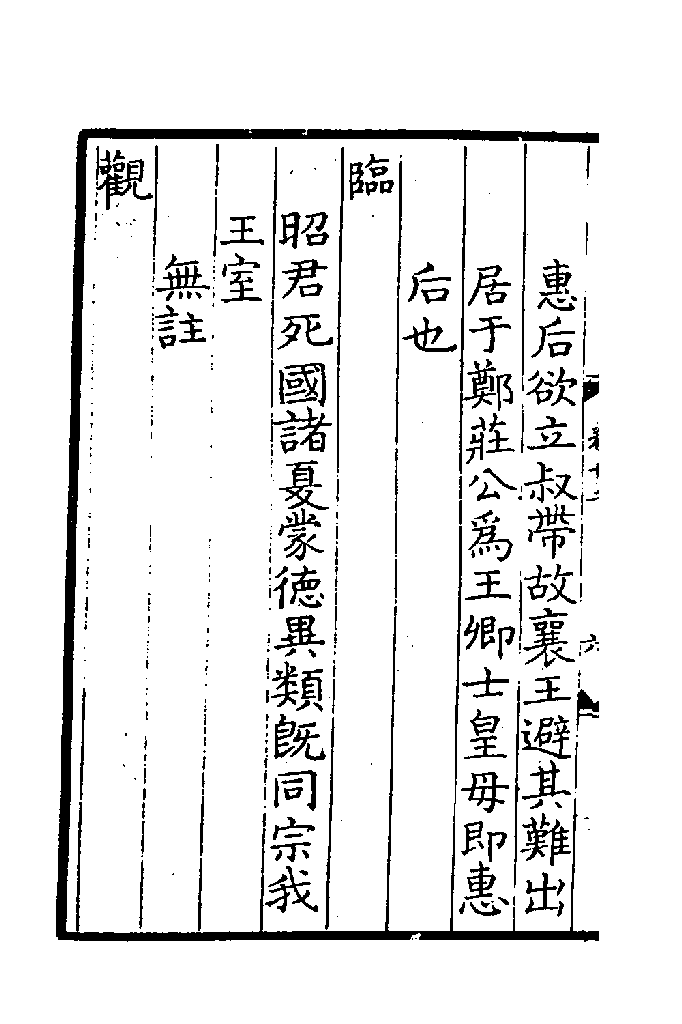 惠后欲立叔帶故襄王避其難出
居于鄭莊公爲王卿士皇毋即惠
后也
臨
昭君死國諸夏蒙德異類旣同宗我
王室
無註
觀
六